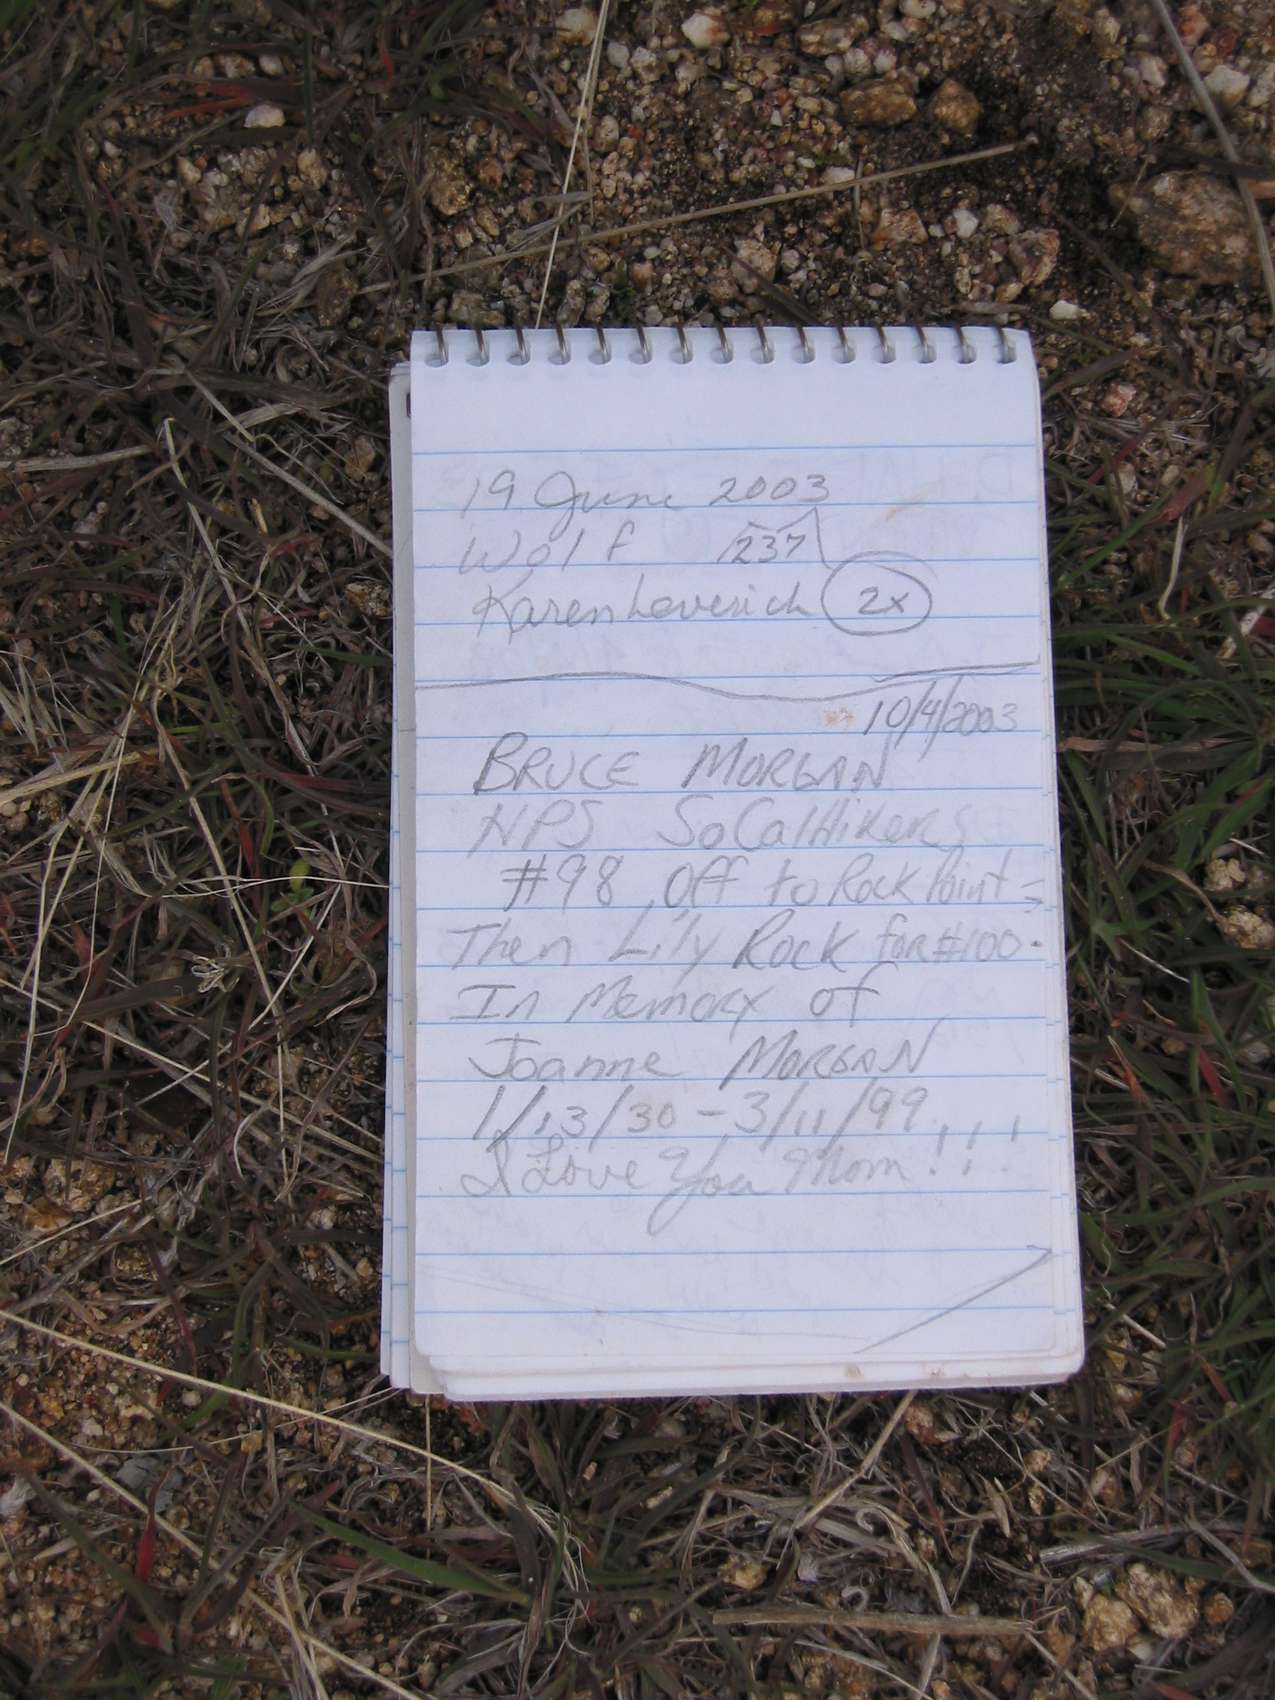 19 June 2003
Wolf 237
Karen Leverich 2x
10/4/2003
BRUCE MORGAN
HPS SoCalHikers
#98 Off to Rock Point
Then Lily Rock for #100.
In Memory of
Joanne MORGAN
1/13/30 - 3/11/99
I Love You Mom!!!